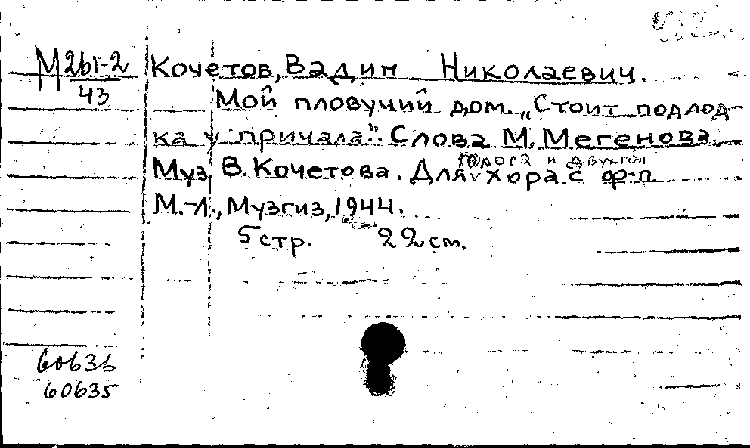 М 261-2
43
Кочетов, Вадим Николаевич.
Мой пловучий дом. „Стоит подлод-
ка у причала". Слова М. Мегенова.
Муз. В. Кочетова. Для хора с ф-п
М.-Л., Музгиз, 1944.
5 стр. 22 см.
60635